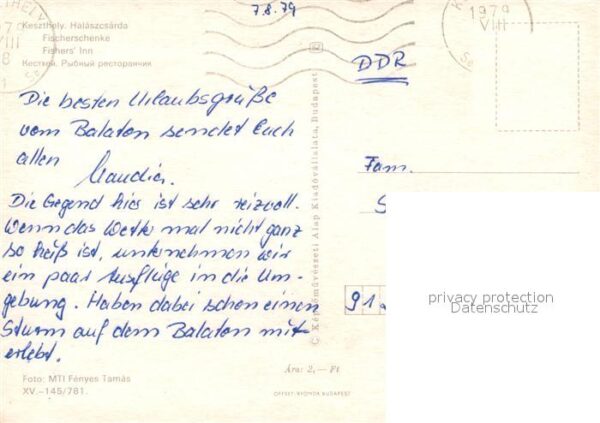 7.8.79
Keszthely. Halászcsárda
Fischerschenke
Fishers' Inn
Кестхей. Рыбный ресторанчик
1979
VIII
DDR
Die besten Urlaubsgrüße
vom Balaton sendet Euch
allen
Claudia.
Die Gegend hier ist sehr reizvoll.
Wenn das Wetter mal nicht ganz
so heiß ist, unternehmen wir
ein paar Ausflüge in die Um-
gebung. Haben dabei schon einen
Sturm auf dem Balaton mit-
erlebt.
Foto: MTI Fényes Tamás
XV.–145/781.
© Képzőművészeti Alap Kiadóvállalata, Budapest
Fam.
S
91
privacy protection
Datenschutz
Ára: 2,— Ft
OFFSET-NYOMDA BUDAPEST